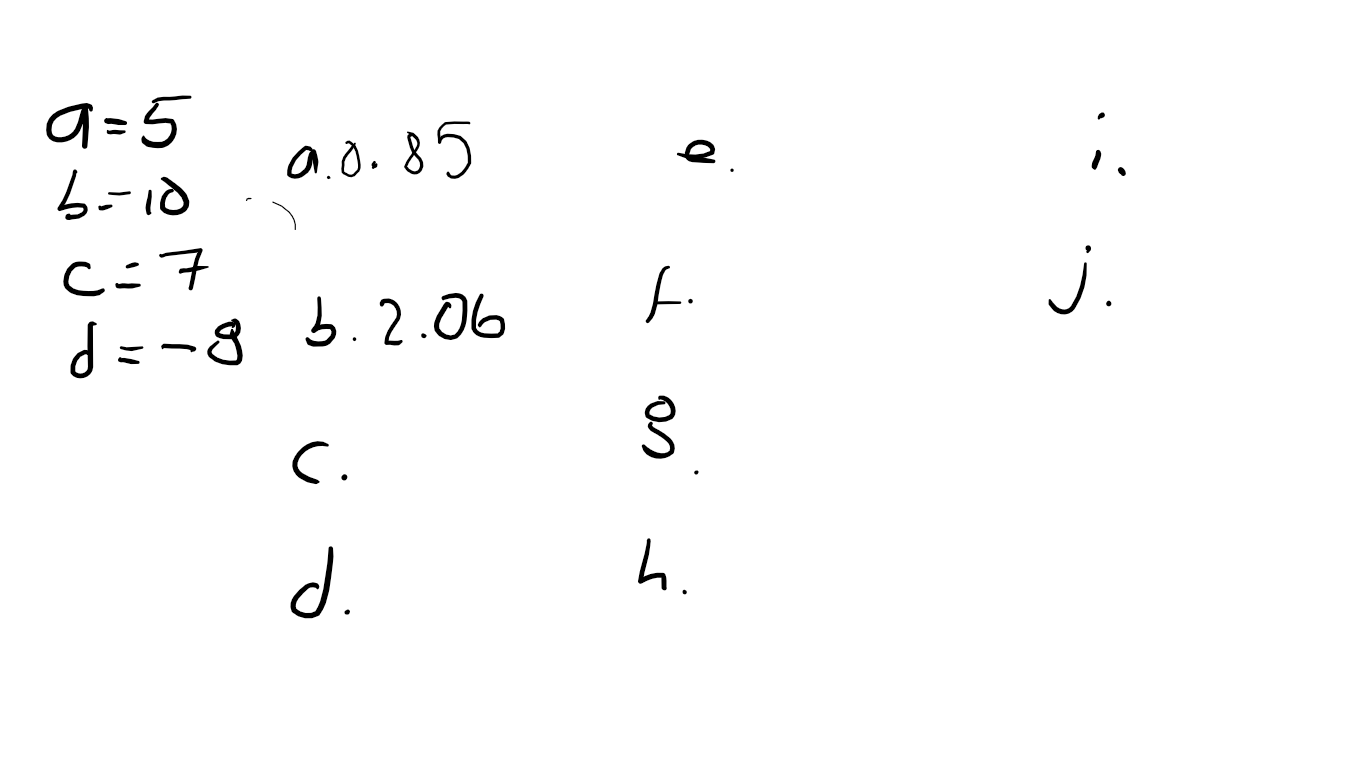 a=5
b=10
c=7
d=-8
a.0.85
b.2.06
c.
d.
e.
f.
g.
h.
i.
j.